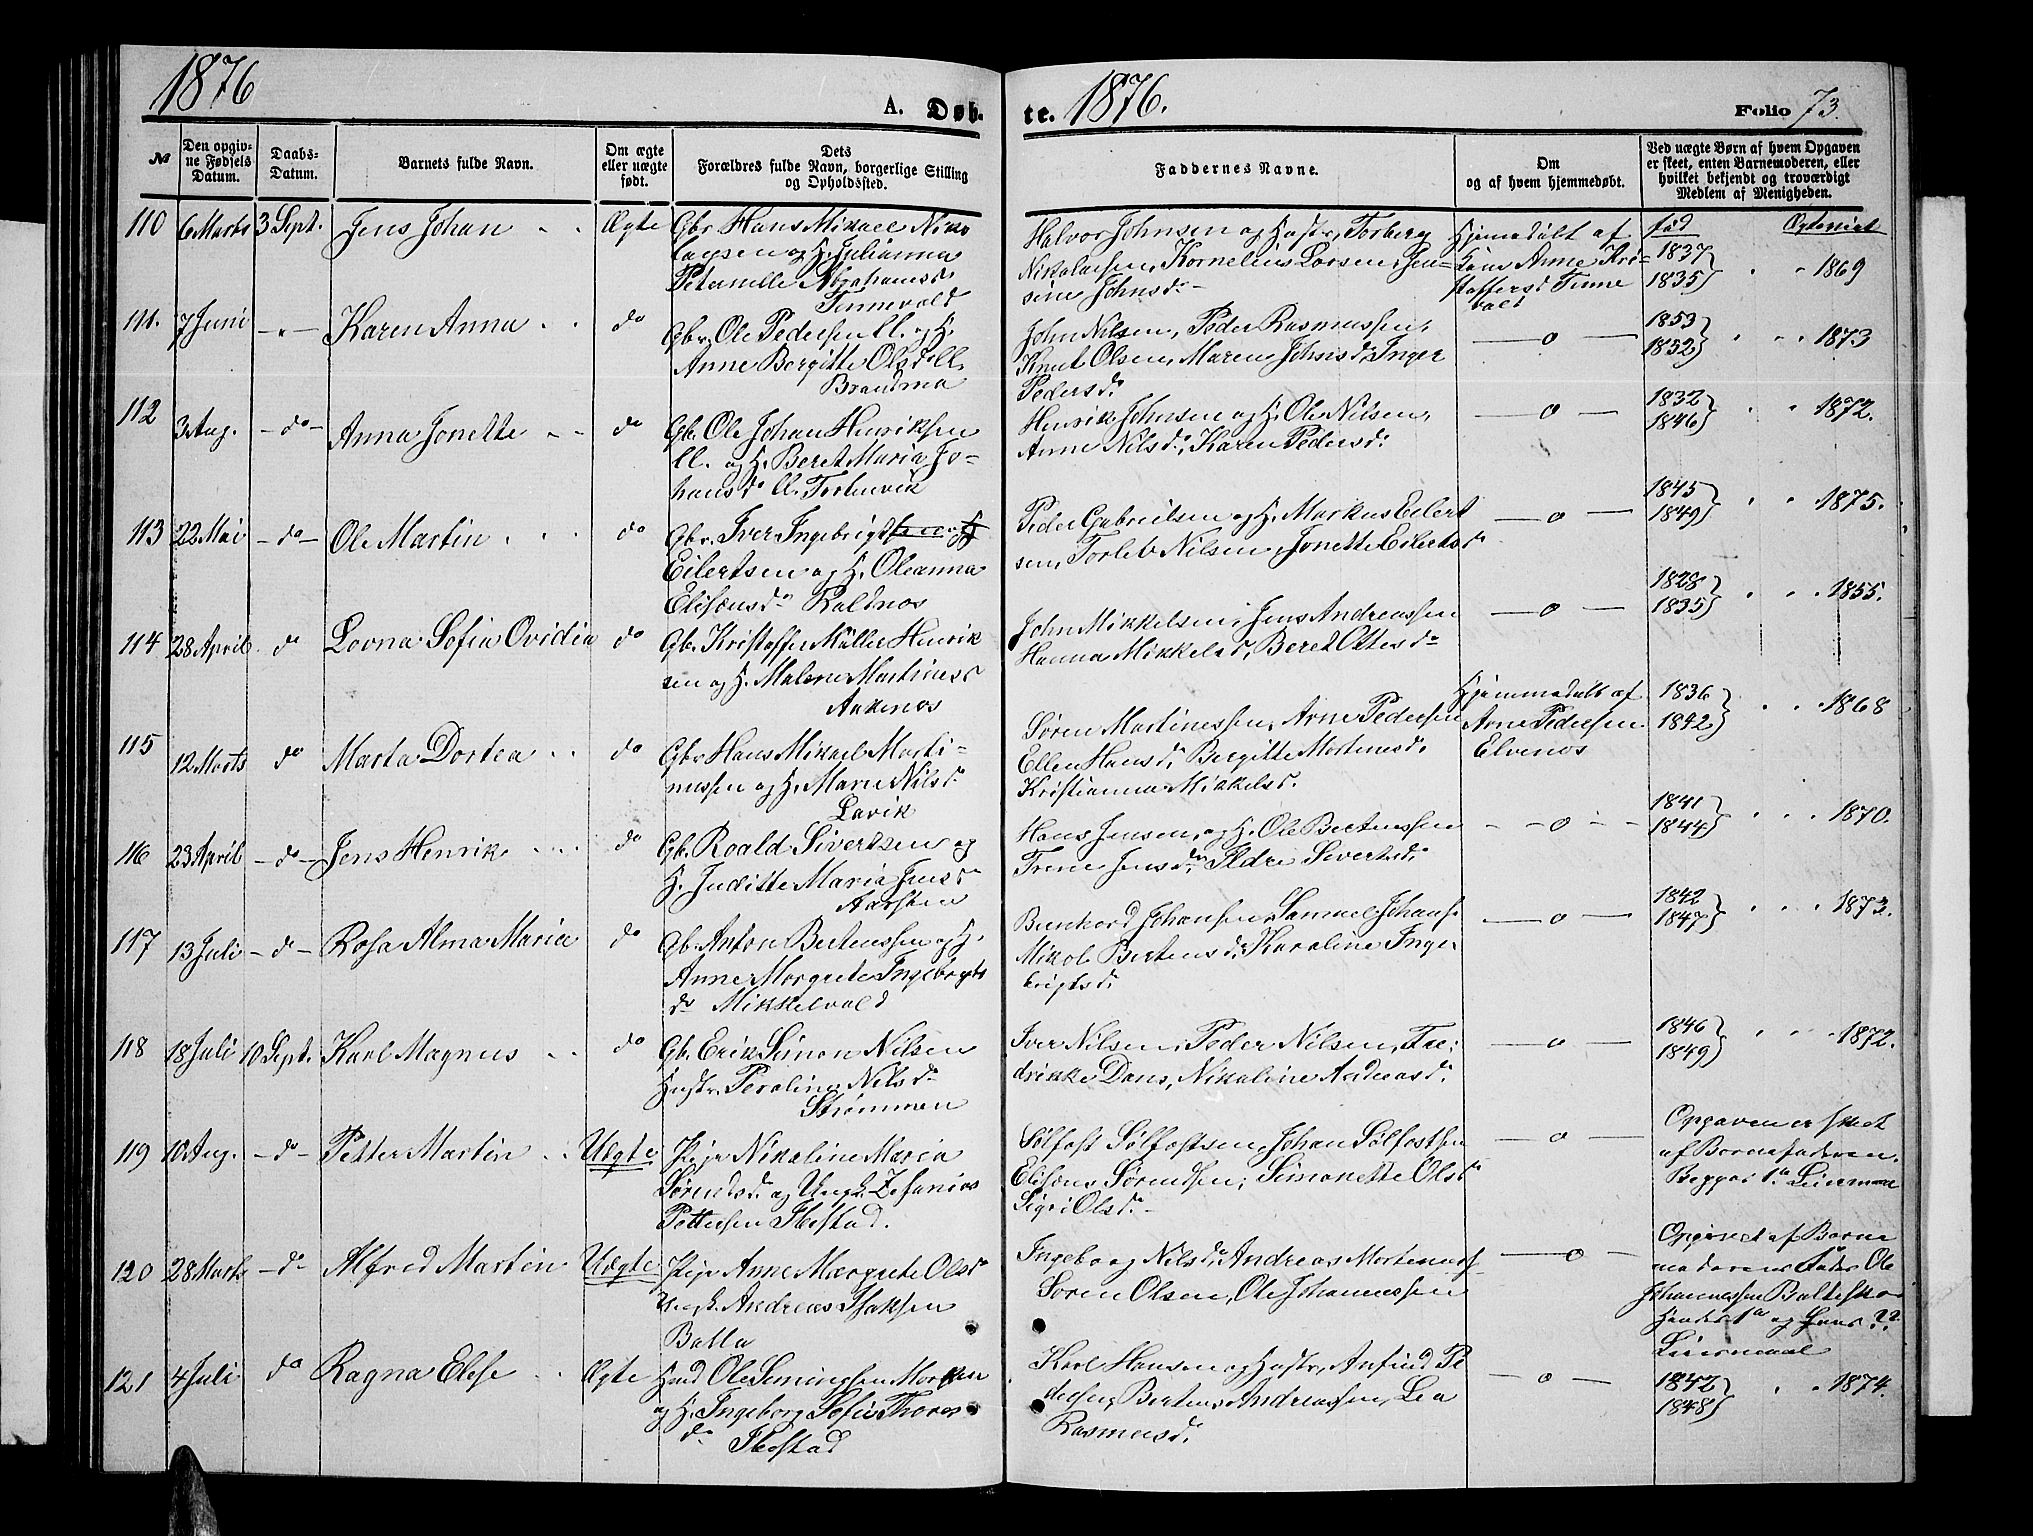 1876
A. Døb-
te. 1876.
Folio 73.
№
Den opgiv-
ne Fødsels
Datum.
Daabs-
Datum.
Barnets fulde Navn.
Om ægte
eller uægte
født.
Dets
Forældres fulde Navn, borgerlige Stilling
og Opholdssted.
Faddernes Navne.
Om
og af hvem hjemmedøbt.
Ved uægte Børn af hvem Opgaven
er skeet, enten Barnemoderen, eller
hvilket bekjendt og troværdigt
Medlem af Menigheden.
110 6 Marts 3 Sept. Jens Johan Ægte
Gbr. Hans Mikael Niko
laysen og H. Julianna
Peternille Abrahamsd.
Tennevold
Halvor Johnsen og Hustr., Torberg
Nikolaisen, Kornelius Larsen, Jen-
sine Johnsd.
Hjemmedøbt af
Anne Kri-
stoffersd. Tenne
vold
fød
1837
1835 1869
111. 7 Juni Karen Anna do
Gbr. Ole Pedersen ll. og H.
Anne Bergitte Olsd. ll.
John Nilsen, Peder Rasmussen,
Knut Olsen, Maren Johnsd. Inger
Pedersd.
o
1853
1852 1873
112 3 Aug. do Anna Jonette do
Gbr. Ole Johan Henriksen
ll. og H. Beret Maria Jo-
hansd. ll.
Henrik Johnsen og H. Ole Nilsen,
Anne Nilsd., Karen Pedersd.
o
1832
1846 1872.
113 22 Mai do Ole Martin do
Gbr. Iver Ingebrigtsen og H
Eilertsen og H. Oleanna
Elisæusd.
Peder Gabrielsen og H. Markus Eilert
sen, Torleb Nilsen, Jonette Eilertsd.
o
1845
1849 1875.
114 28 April do Lovna Sofia Ovidia do
Gbr. Kristoffer Müller Henrik
sen og H. Malene Martinesd.
Ankenes
John Mikkelsen, Jens Andreassen
Hanna Mikkelsd., Beret Ottesd.
o
1835 1855.
115 12 Marts do Marta Dortea do
Gbr. Hans Mikael Marti-
nussen og H. Maren Nilsd.
Lavik
Søren Martinessen, Arne Pedersen
Ellen Hansd., Bergitte Mortensd.
Kristianna Mikkelsd.
Hjemmedøbt af
Arne Pedersen
Elvenes
1836
1842 1868
116 23 April do Jens Henrik do
Gb. Roald Sivertsen og
H. Juditte Maria Jensd.
Aarsten
Hans Jensen, og H. Ole Bertenssen
Trine Jensd., Peldre Sivertsd.
o
1841
1844 1870.
117 13 Juli do Rosa Alma Maria do
Gb. Anton Bertenssen og H.
Anne Margrete Ingebrigts
do Mikkelvold
Bernhard Johansen, Samuel Johans.
Mikol. Bertensd., Karoline Inge
brigtsd.
o
1842
1847 1873.
118 18 Juli 10 Sept. Karl Magnus do
Gb. Erik Simon Nilsen
Hustr. Peroline Nilsd.
Strømmen
Iver Nilsen, Peder Nilsen, Fre-
drikke Dans, Nikoline Andreasd.
o
1846
1849 1872.
119 10 Aug. do Petter Martin Uægte
Pige Nikoline Maria
Sørensd. og Ungk. Zefanias
Pettersen Ibestad.
Sølfast Sølfastsen, Johan Sølfastsen
Elisæus Sørensen, Simonette Olsd.
Sigri Olsd.
o
Opgaven er skeet
af Barnefaderen.
Begges 1ste Leiermaal
120 28 Marts do Alfred Martin Uægte
Pige Anne Margrete Olsd.
Ungk. Andreas Isaksen
Balla
Ingeborg Nilsd., Andreas Mortensen
Søren Olsen, Ole Johannessen
o
Opgivet af Barne
moderens Fader Ole
Johannessen
Hendes 1ste og hans ??
Leiermaal
121 4 Juli do Ragna Elise Ægte
og H. Ingeborg Sofie Thores
do Ibestad
Karl Hansen og Hustr., Arfind Pe
dersen, Bertens Andreassen, Lea
Rasmusd.
o
1842
1848 1874.